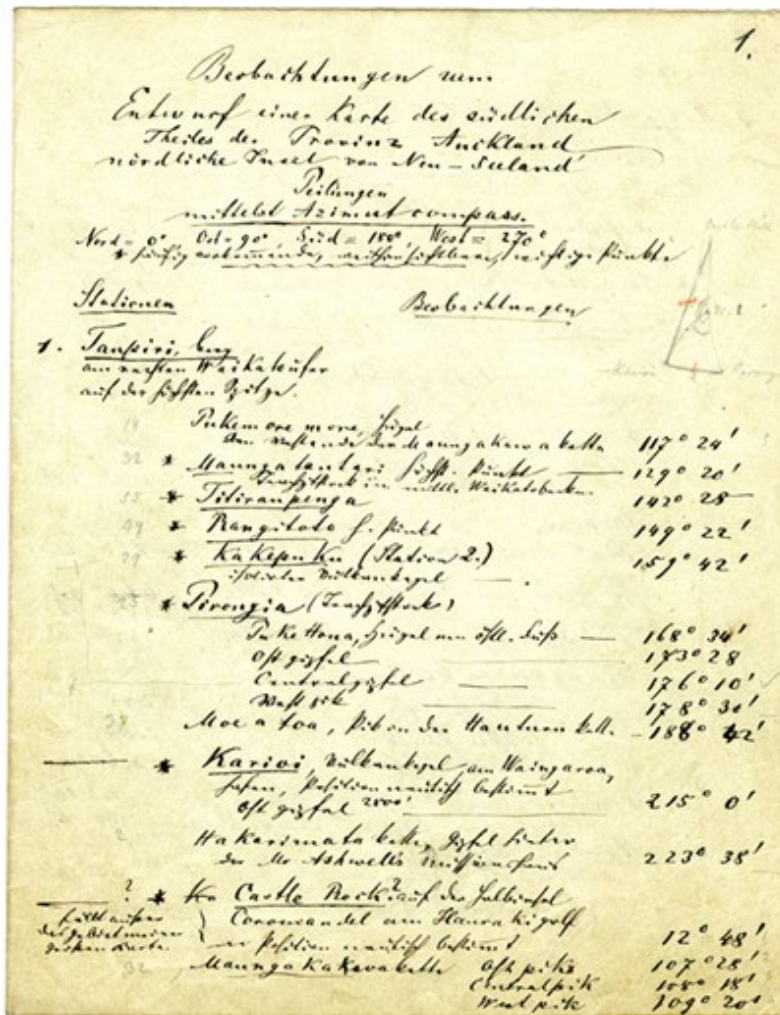 1.
Beobachtungen zum
Entwurf einer Karte des südlichen
Theiles der Provinz Auckland
nördliche Insel von Neu-Seeland
Peilungen
mittelst Azimut compass.
Nord = 0° Ost = 90°, Süd = 180°, West = 270°
* häufig vorkommende, weithin sichtbare, wichtige Punkte
Stationen Beobachtungen
1. Taupiri, berg
am rechten Waikatoufer
auf der höchsten Spitze.
Pukemoremore, Hügel
am der Maungakawa kette 117° 24'
32 * Maungatautari höchst. Punkt 129° 20'
im mittl. Waikatobecken
* Titiraupenga 142° 28
* Rangitoto h. Punkt 149° 22'
29 * Kakepuku (Station 2.) 159° 42'
isolirter Vulkankegel
25 * Pirongia (Trachytstock)
Puke Hona, Hügel am östl. Fuß 168° 34'
Ostgipfel 173° 28
Centralgipfel 176° 10'
Westpik 178° 30'
Moeatoa, Pik an der Hauturu kette 188° 42'
* Karioi, Vulkankegel am Waingaroa,
hafen, Position nautisch bestimmt
Ostgipfel 2800' 215° 0'
Hakarimata kette, Gipfel hinter
des Mr Ashwells missionshaus 223° 38'
? * Castle Rock? auf der Halbinsel
fällt außer Coromandel am Hauraki golf
das gebiet meiner Position nautisch bestimmt 12° 48'
großen Karte.
32 Maungakakawa kette Ostpik 107° 28'
Centralpik 108° 18'
Westpik 109° 20'